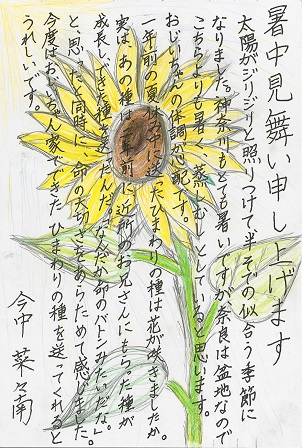 暑中見舞い申し上げます
太陽がジリジリと照りつけて半そでの似合う季節に
なりました。神奈川もとても暑いですが奈良は盆地なので
こちらよりも暑く、蒸しむしとしていると思います。
おじいちゃんの体調が心配です。
一年前の夏休みに送ったひまわりの種は花が咲きましたか。
実は、あの種は 前に近所のお兄さんにもらった種が
成長してできた種を送ったんだ。「なんだか命のバトンみたいだな」
と思ったと同時に 命の大切さをあらためて感じました。
今度はおじいちゃん家でできたひまわりの種を送ってくれると
うれしいです。
今中 菜々南